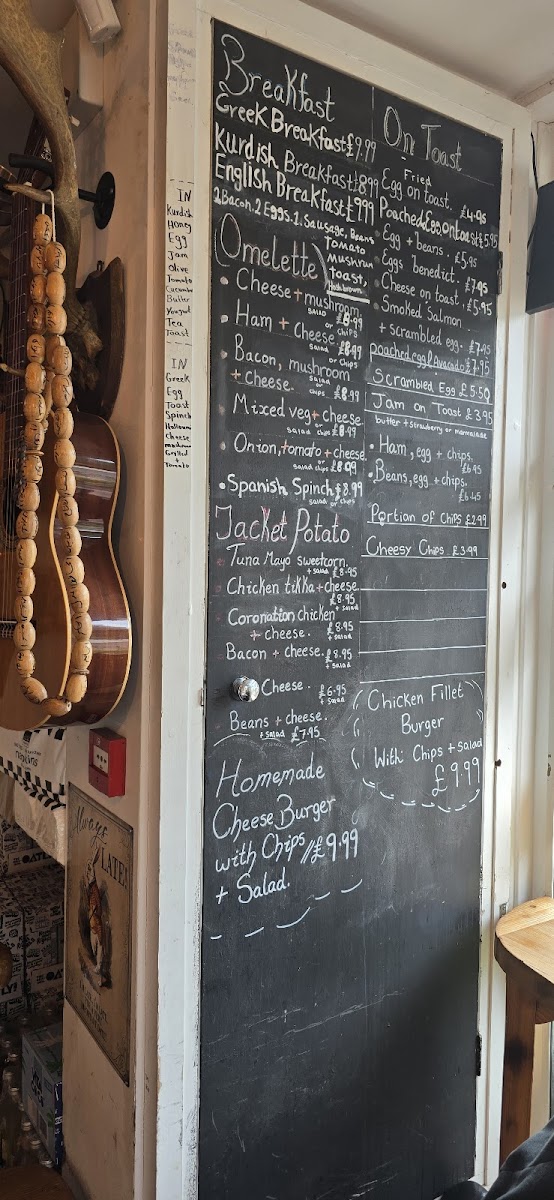 Breakfast
Greek Breakfast £9.99
Kurdish Breakfast £8.99
English Breakfast £9.99
2 Bacon. 2 Eggs. 1. Sausage, Beans
Tomato
Mushrum
toast,
Hash brown
Omelette
Cheese + mushroom.
salad or chips £8.99
Ham + Cheese
salad or chips £8.99
Bacon, mushroom
+ cheese.
salad or chips £8.99
Mixed veg + cheese
salad or chips £8.99
Onion, tomato + cheese
salad chips £8.99
Spanish Spinch £8.99
salad or chips
Jacket Potato
Tuna Mayo sweetcorn.
+ salad £8.95
Chicken tikka + cheese.
£8.95
+ salad
Coronation chicken
+ cheese. £8.95
+ salad
Bacon + cheese. £8.95
+ salad
Cheese. £6.95
+ salad
Beans + cheese.
+ salad £7.95
Homemade
Cheese Burger
with Chips // £9.99
+ Salad.
On Toast
Fried
Egg on toast. £4.95
Poached Egg on toast £5.95
Egg + beans. £5.95
Eggs benedict. £7.95
Cheese on toast. £5.95
Smoked Salmon
+ scrambled egg. £7.95
poached egg & Avocado £7.95
Scrambled Egg £5.50
Jam on Toast £3.95
butter + strawberry or marmalade
Ham, egg + chips.
£6.95
Beans, egg + chips.
£6.45
Portion of Chips £2.99
Cheesy Chips £3.99
Chicken Fillet
Burger
With Chips + salad
£9.99
IN
Kurdish
Honey
Egg
Jam
Olive
Tomato
Cucumber
Butter
Yougut
Tea
Toast
IN
Greek
Egg
Toast
Spinch
Halloumi
Cheese
mushroom
Grilled
+
Tomato
Always
LATER
OATLY!